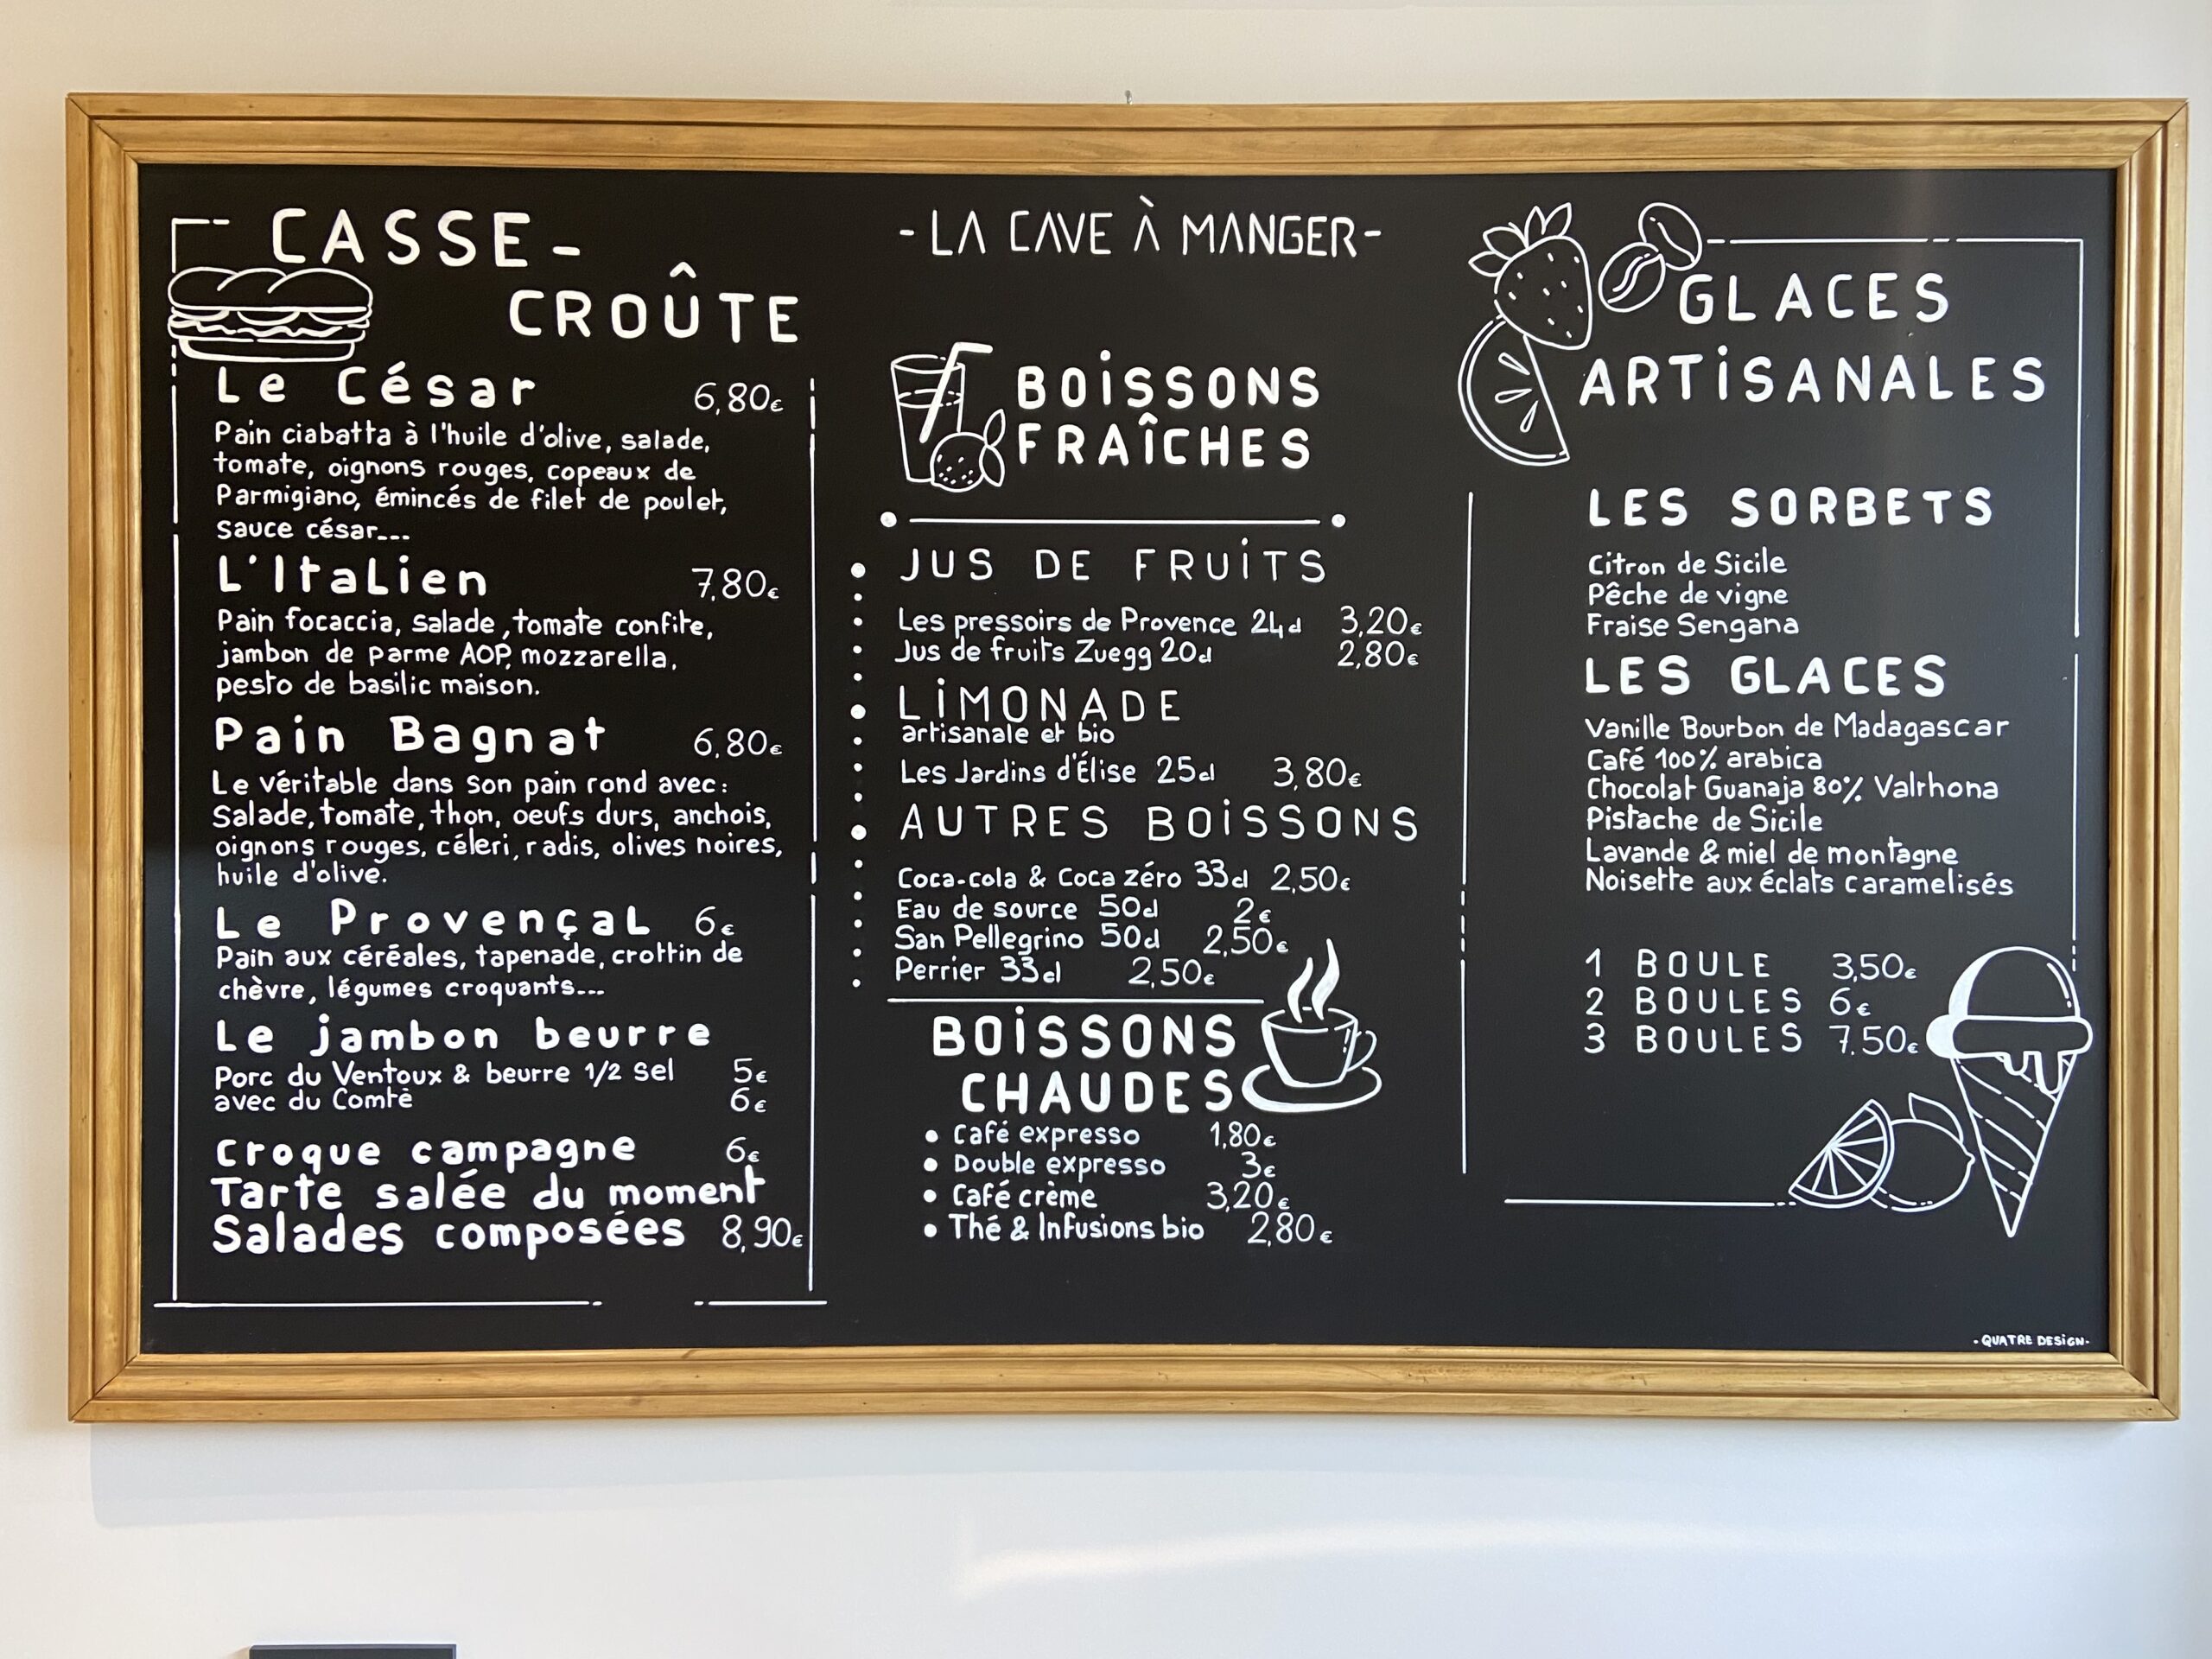 CASSE-
CROÛTE
Le César 6,80€
Pain ciabatta à l'huile d'olive, salade,
tomate, oignons rouges, copeaux de
Parmigiano, émincés de filet de poulet,
sauce césar---
L'Italien 7,80€
Pain focaccia, salade, tomate confite,
jambon de parme AOP, mozzarella,
pesto de basilic maison.
Pain Bagnat 6,80€
Le véritable dans son pain rond avec:
Salade, tomate, thon, oeufs durs, anchois,
oignons rouges, céleri, radis, olives noires,
huile d'olive.
Le Provençal 6€
Pain aux céréales, tapenade, crottin de
chèvre, légumes croquants---
Le jambon beurre
Porc du Ventoux & beurre 1/2 sel 5€
avec du Comtè 6€
Croque campagne 6€
Tarte salée du moment
Salades composées 8,90€
-LA CAVE À MANGER-
BOISSONS
FRAÎCHES
JUS DE FRUITS
Les pressoirs de Provence 24cl 3,20€
Jus de fruits Zuegg 20cl 2,80€
LIMONADE
artisanale et bio
Les Jardins d'Élise 25cl 3,80€
AUTRES BOISSONS
Coca-cola & Coca zéro 33cl 2,50€
Eau de source 50cl 2€
San Pellegrino 50cl 2,50€
Perrier 33cl 2,50€
BOISSONS
CHAUDES
• Café expresso 1,80€
• Double expresso 3€
• Café crème 3,20€
• Thé & Infusions bio 2,80€
GLACES
ARTISANALES
LES SORBETS
Citron de Sicile
Pêche de vigne
Fraise Sengana
LES GLACES
Vanille Bourbon de Madagascar
Café 100% arabica
Chocolat Guanaja 80% Valrhona
Pistache de Sicile
Lavande & miel de montagne
Noisette aux éclats caramelisés
1 BOULE 3,50€
2 BOULES 6€
3 BOULES 7,50€
-QUATRE DESIGN-